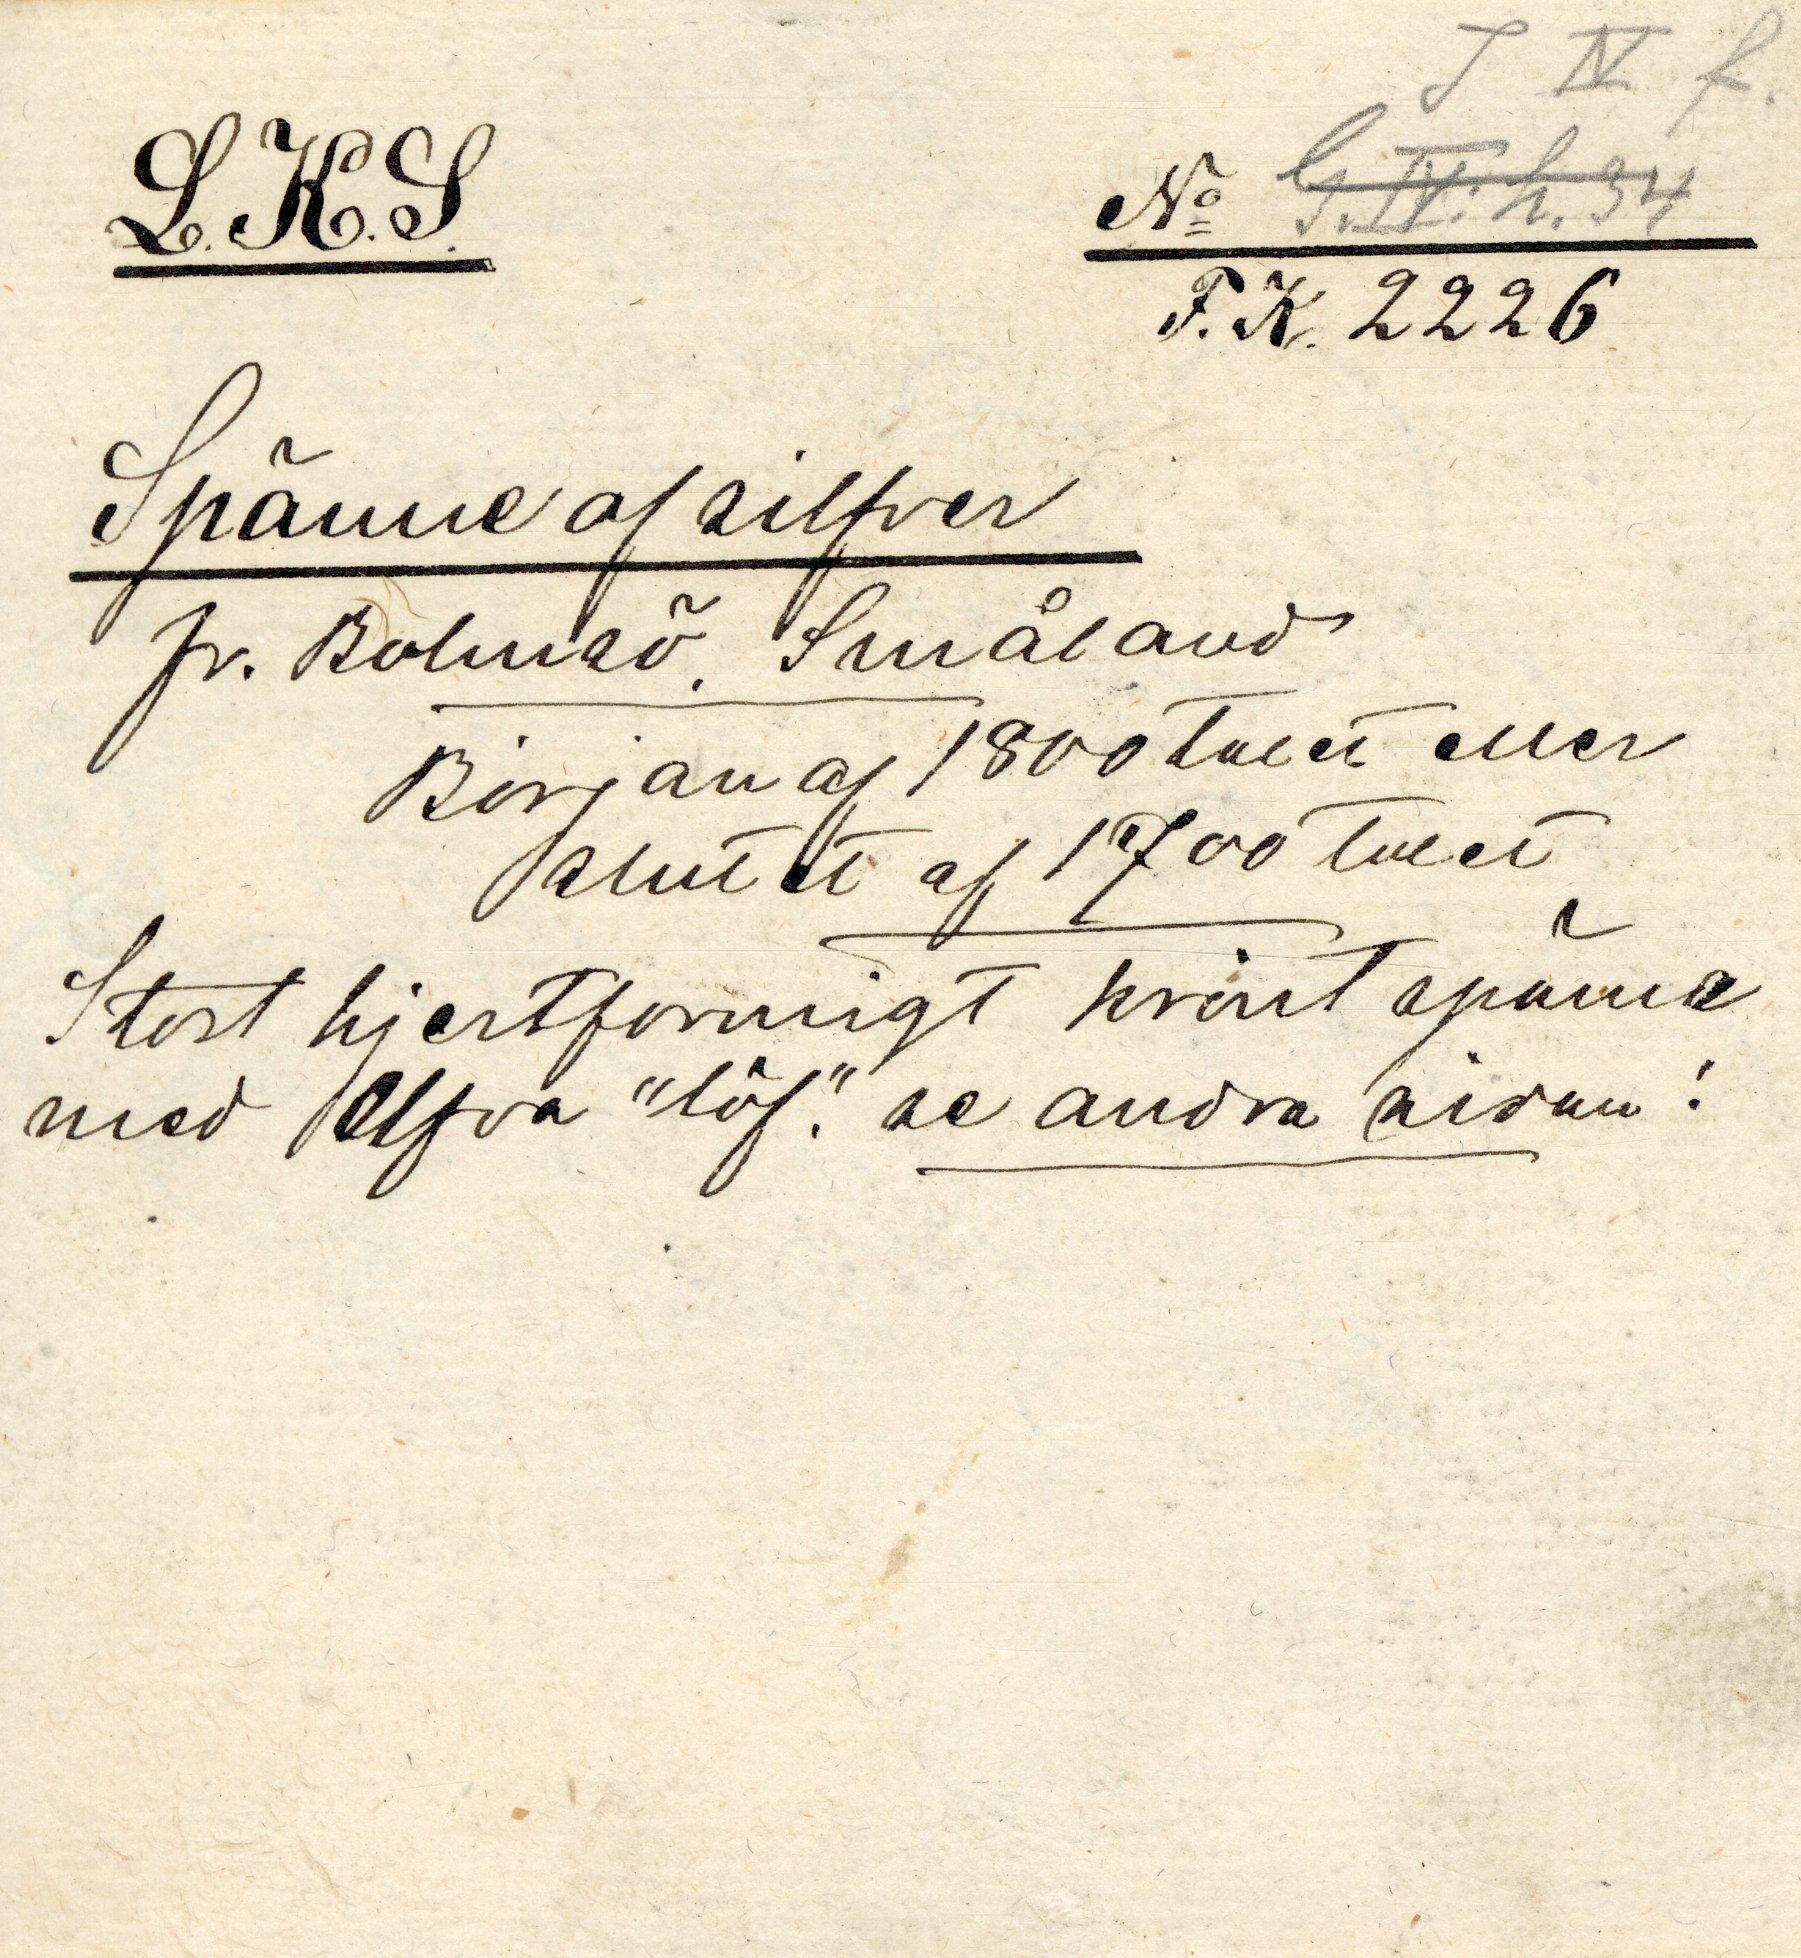 I IV f.
L.K.S.
No G.IV.h.34
F.K. 2226
Spänne af silfver
fr. Bolmsö. Småland
Början af 1800 talet eller
slutet af 1700 talet
Stort hjertformigt krönt spänne
med elfva "löf". se andra sidan!